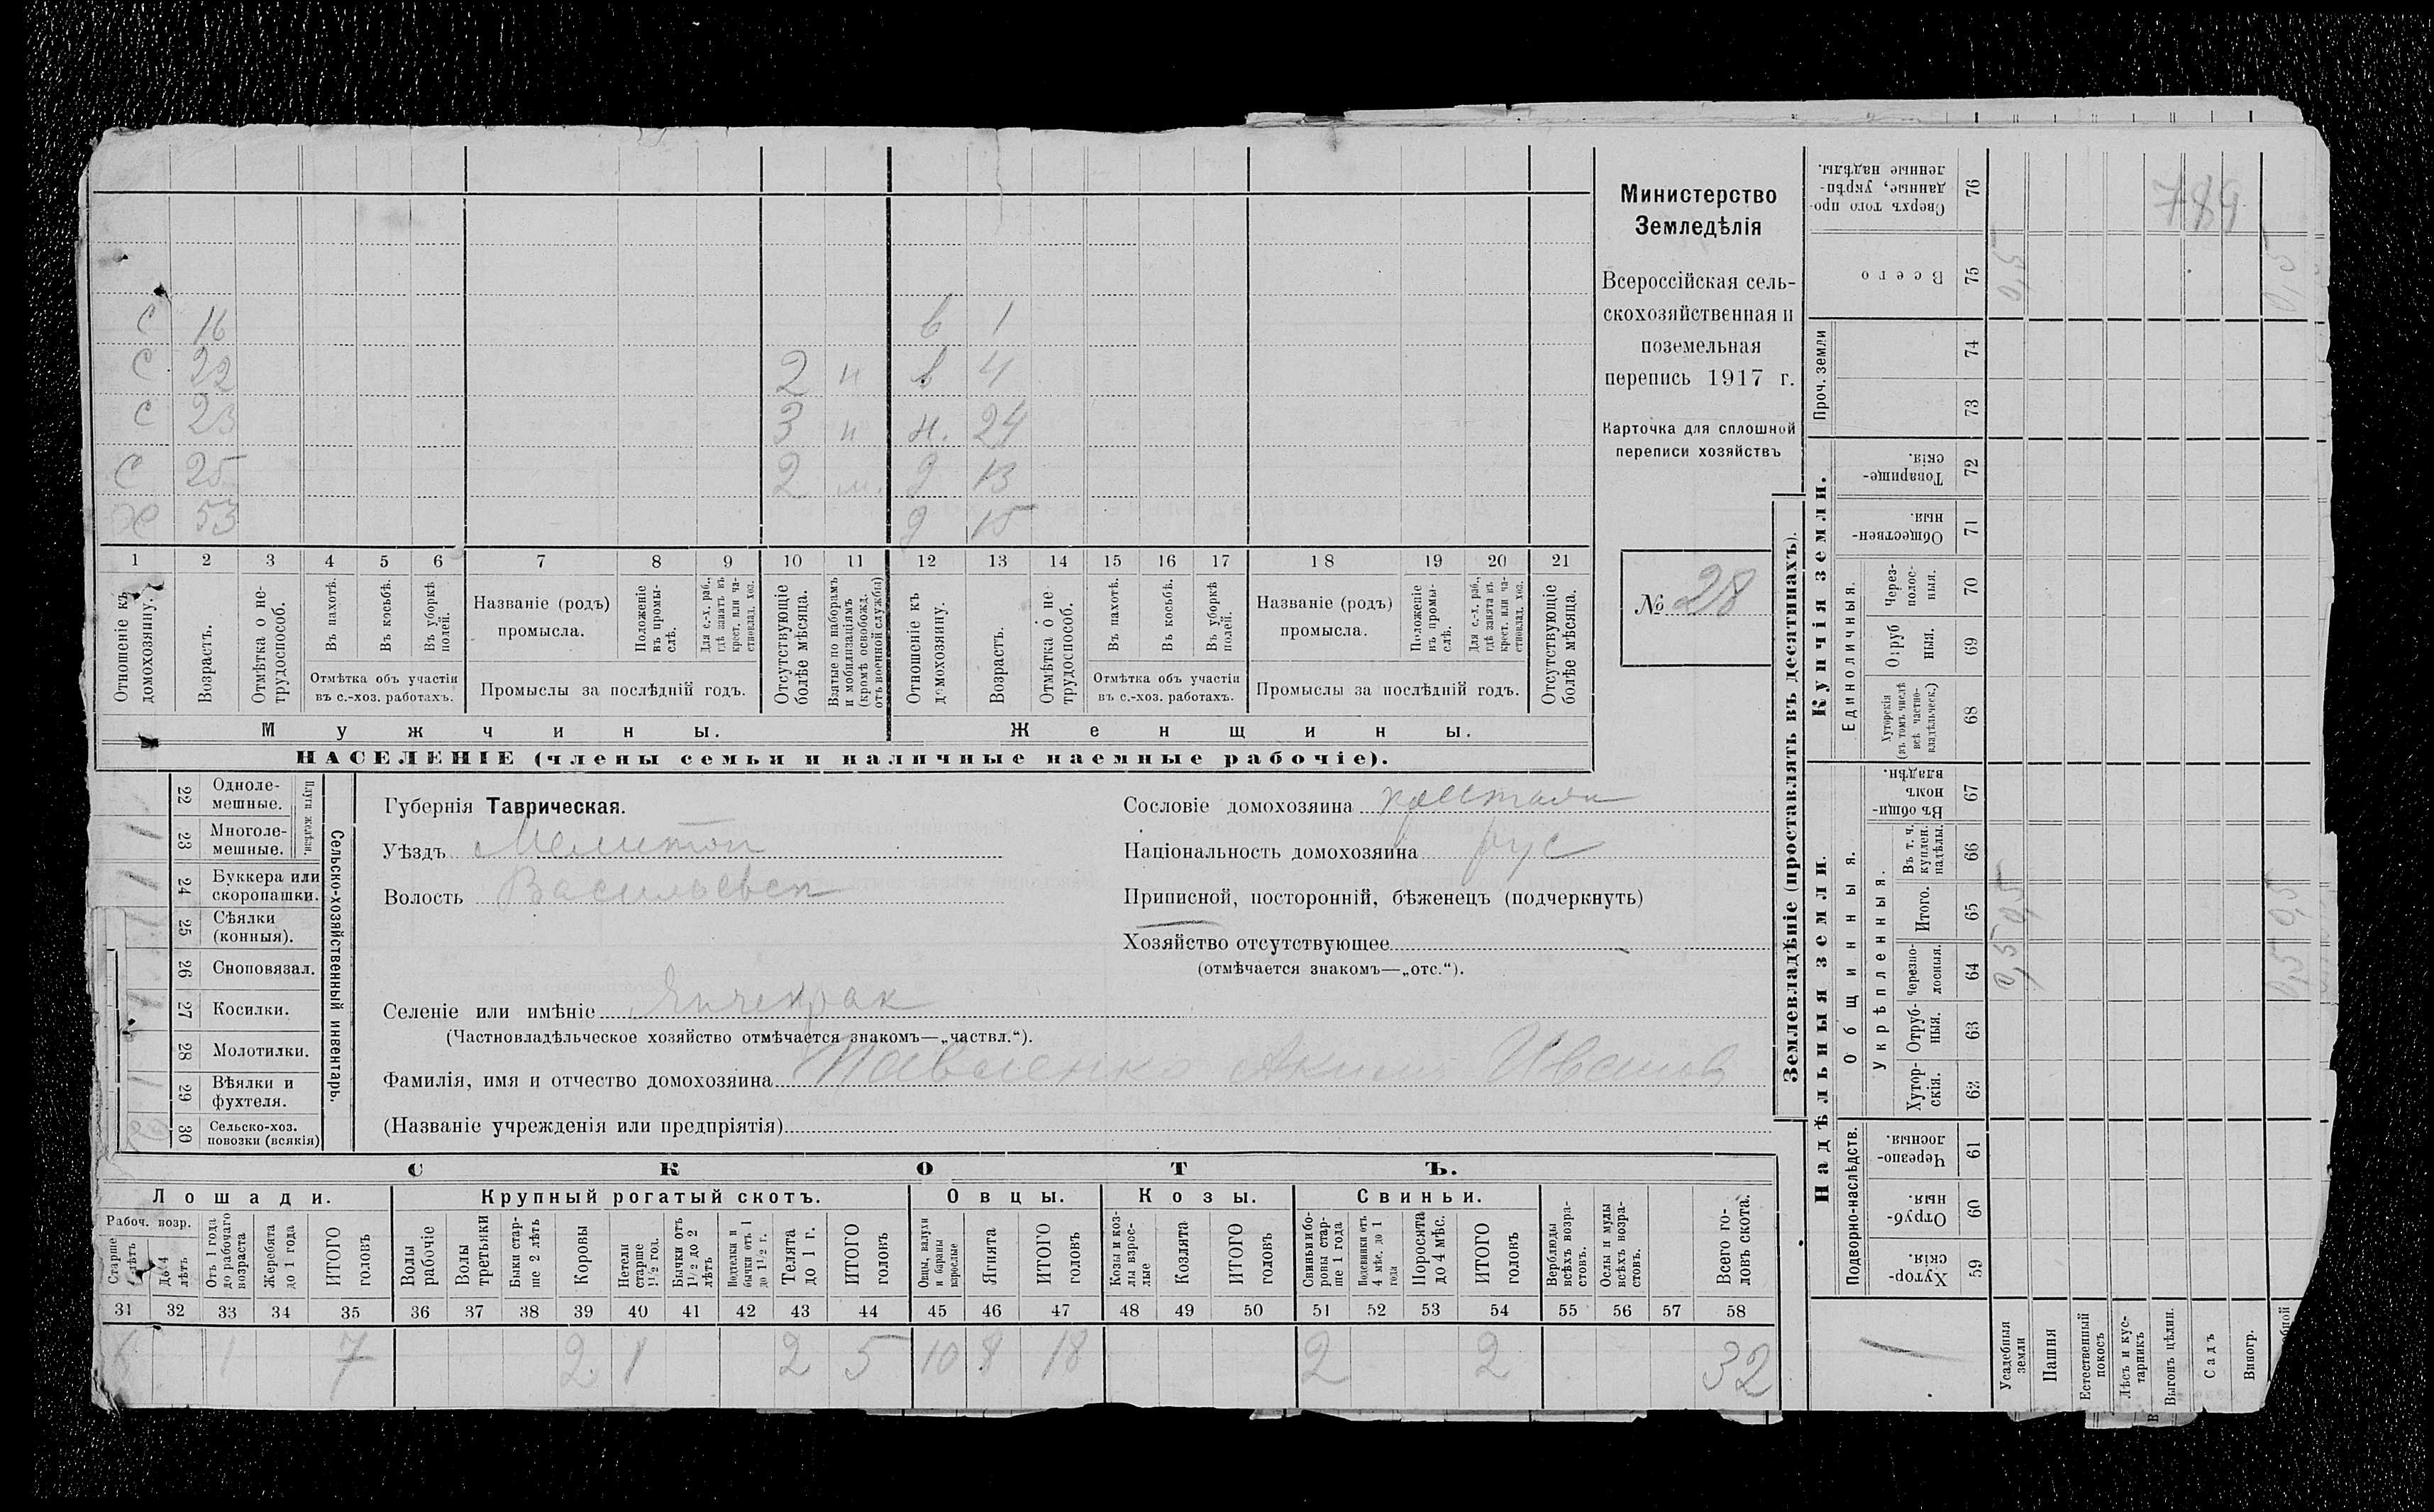 Министерство
Земледѣлія
Всероссійская сель-
скохозяйственная и
поземельная
перепись 1917 г.
Карточка для сплошной
переписи хозяйствъ
№ 28
С 16 в 1
С 22 2 н в 4
С 23 3 н н. 24
С 25 2 д 13
Х 53 д 15
1 2 3 4 5 6 7 8 9 10 11 12 13 14 15 16 17 18 19 20 21
Отношеніе къ домохозяину.
Возрастъ.
Отмѣтка о не-трудоспособ.
Въ пахотѣ.
Въ косьбѣ.
Въ уборкѣ полей.
Отмѣтка объ участіи
въ с.-хоз. работахъ.
Названіе (родъ)
промысла.
Положеніе въ промы-слѣ.
Для с.-х. раб., гдѣ занятъ въ крест. или ча-стновлад. хоз.
Промыслы за послѣдній годъ.
Отсутствующіе болѣе мѣсяца.
Взятые по наборамъ и мобилизаціямъ (кромѣ освобожд. отъ военной службы)
Отношеніе къ домохозяину.
Возрастъ.
Отмѣтка о не-трудоспособ.
Въ пахотѣ.
Въ косьбѣ.
Въ уборкѣ полей.
Отмѣтка объ участіи
въ с.-хоз. работахъ.
Названіе (родъ)
промысла.
Положеніе въ промы-слѣ.
Для с.-х. раб., гдѣ занята въ крест. или ча-стновлад. хоз.
Промыслы за послѣдній годъ.
Отсутствующіе болѣе мѣсяца.
Мужчины. Женщины.
НАСЕЛЕНІЕ (члены семьи и наличные наемные рабочіе).
Сельско-хозяйственный инвентарь.
Плуги желѣзн.
22 Одноле-мешные.
1 23 Многоле-мешные.
1 24 Буккера или скоропашки.
1 25 Сѣялки (конныя).
26 Сноповязал.
1 27 Косилки.
28 Молотилки.
1 29 Вѣялки и фухтеля.
30 Сельско-хоз. повозки (всякія)
Губернія Таврическая.
Уѣздъ Мелитоп
Волость Васильевск
Селеніе или имѣніе Янчекрак
(Частновладѣльческое хозяйство отмѣчается знакомъ—„частвл.“).
Фамилія, имя и отчество домохозяина Павленко Аким Иванов
(Названіе учрежденія или предпріятія)
Сословіе домохозяина крестьян
Національность домохозяина рус
Приписной, посторонній, бѣженецъ (подчеркнуть)
Хозяйство отсутствующее
(отмѣчается знакомъ—„отс.“).
СКОТЪ.
Лошади. Крупный рогатый скотъ. Овцы. Козы. Свиньи.
Рабоч. возр.
Старше 4 лѣтъ
До 4 лѣтъ
Отъ 1 года до рабочаго возраста
Жеребята до 1 года
ИТОГО головъ
Волы рабочіе
Волы третьяки
Быки стар-ше 2 лѣтъ
Коровы
Нетели старше 1½ год.
Бычки отъ 1½ до 2 лѣтъ
Подтелки и бычки отъ 1 до 1½ г.
Телята до 1 г.
ИТОГО головъ
Овцы, валухи и бараны взрослые
Ягнята
ИТОГО головъ
Козы и коз-лы взрос-лые
Козлята
ИТОГО головъ
Свиньи и бо-ровы стар-ше 1 года
Подсвинки отъ 4 мѣс. до 1 года
Поросята до 4 мѣс.
ИТОГО головъ
Верблюды всѣхъ возра-стовъ.
Ослы и мулы всѣхъ возра-стовъ.
Всего го-ловъ скота.
31 32 33 34 35 36 37 38 39 40 41 42 43 44 45 46 47 48 49 50 51 52 53 54 55 56 57 58
6 1 7 2 1 2 5 10 8 18 2 2 32
Землевладѣніе (проставлять въ десятинахъ).
Надѣльныя земли. Купчія земли. Проч. земли
Подворно-наслѣдств.
Общинныя.
Укрѣпленныя.
Единоличныя.
59 Хутор-скія.
60 Отруб-ныя.
61 Черезпо-лосныя.
62 Хутор-скія.
63 Отруб-ныя.
64 Черезпо-лосныя.
65 Итого.
66 Въ т. ч. куплен. надѣлы.
67 Въ общин-номъ владѣн.
68 Хуторскія (въ томъ числѣ всѣ частно-владѣльческ.)
69 Отруб-ныя.
70 Через-полос-ныя.
71 Обществен-ныя.
72 Товарище-скія.
73
74
75 Всего
76 Сверхъ того про-данные, укрѣп-ленные надѣлы.
Усадебныя земли 0,5 0,5 0,5
Пашня
Естественный покосъ
Лѣсъ и кус-тарникъ
Выгонъ цѣлин.
Садъ
Виногр.
0,5 0,5 0,5
789